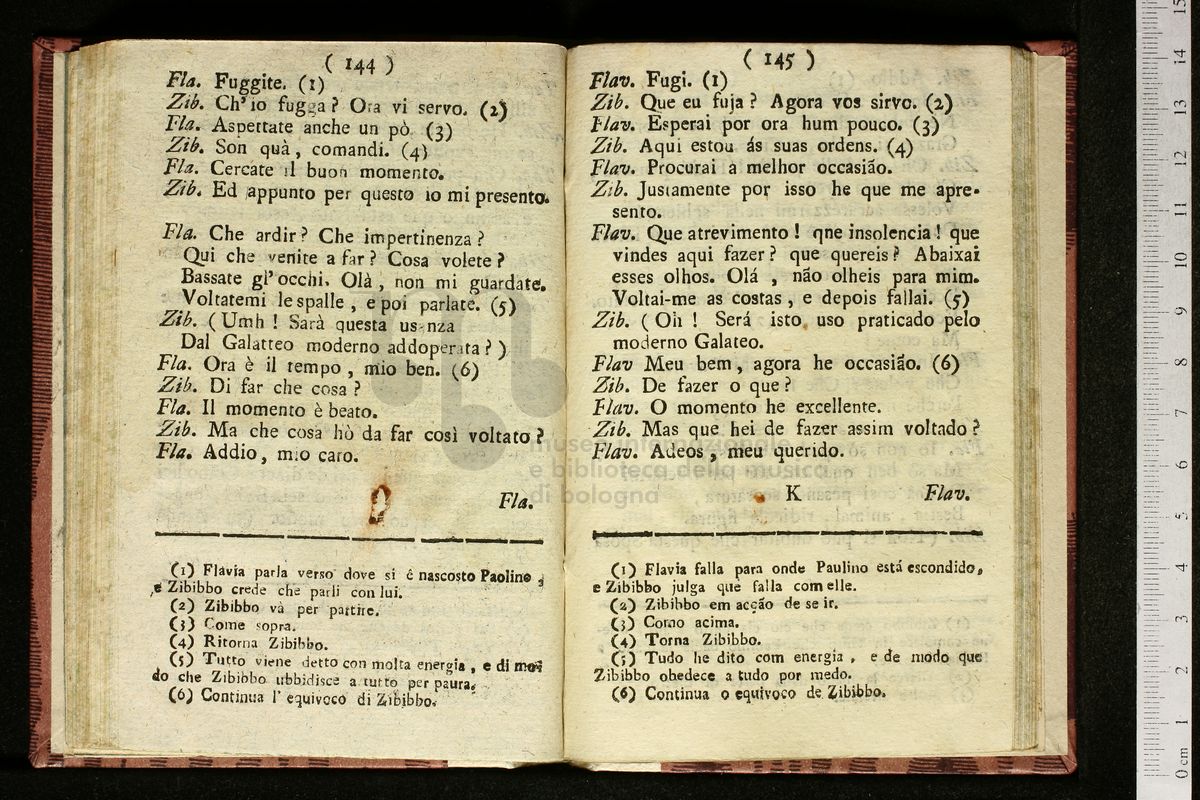 ( 144 )
Fla. Fuggite. (1)
Zib. Ch' io fugga? Ora vi servo. (2)
Fla. Aspettate anche un pò (3)
Zib. Son quà, comandi. (4)
Fla. Cercate il buon momento.
Zib. Ed appunto per questo io mi presento.
Fla. Che ardir? Che impertinenza?
Qui che venite a far? Cosa volete?
Bassate gl' occhi. Olà, non mi guardate.
Voltatemi le spalle, e poi parlate. (5)
Zib. ( Umh! Sarà questa usanza
Dal Galatteo moderno addoperata? )
Fla. Ora è il tempo, mio ben. (6)
Zib. Di far che cosa?
Fla. Il momento è beato.
Zib. Ma che cosa hò da far così voltato?
Fla. Addio, mio caro.
Fla.
(1) Flavia parla verso dove si ê nascosto Paolino,
e Zibibbo crede che parli con lui.
(2) Zibibbo và per partire.
(3) Come sopra.
(4) Ritorna Zibibbo.
(5) Tutto viene detto con molta energia, e di mo-
do che Zibibbo ubbidisce a tutto per paura.
(6) Continua l' equivoco di Zibibbo.
( 145 )
Flav. Fugi. (1)
Zib. Que eu fuja? Agora vos sirvo. (2)
Flav. Esperai por ora hum pouco. (3)
Zib. Aqui estou ás suas ordens. (4)
Flav. Procurai a melhor occasião.
Zib. Justamente por isso he que me apre-
sento.
Flav. Que atrevimento! qne insolencia! que
vindes aqui fazer? que quereis? Abaixai
esses olhos. Olá, não olheis para mim.
Voltai-me as costas, e depois fallai. (5)
Zib. ( Oh! Será isto uso praticado pelo
moderno Galateo.
Flav Meu bem, agora he occasião. (6)
Zib. De fazer o que?
Flav. O momento he excellente.
Zib. Mas que hei de fazer assim voltado?
Flav. Adeos, meu querido.
K Flav.
(1) Flavia falla para onde Paulino está escondido,
e Zibibbo julga que falla com elle.
(2) Zibibbo em acção de se ir.
(3) Como acima.
(4) Torna Zibibbo.
(5) Tudo he dito com energia, e de modo que
Zibibbo obedece a tudo por medo.
(6) Continua o equivoco de Zibibbo.
museo internazionale
e biblioteca della musica
di bologna
0 cm 1 2 3 4 5 6 7 8 9 10 11 12 13 14 15